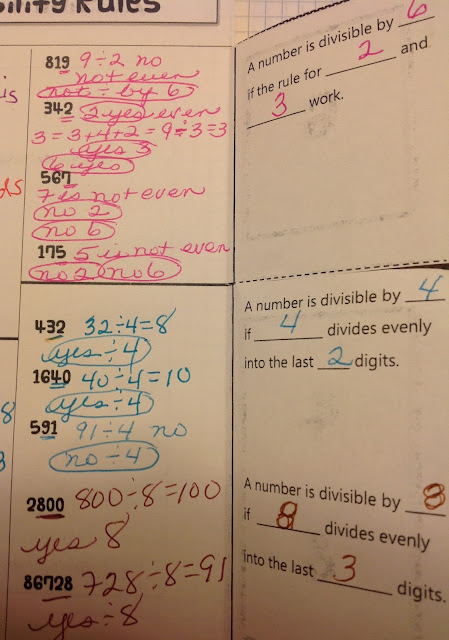 ility Rules
819 9÷2 no
not even
not ÷ by 6
342 2 yes even
3 = 3+4+2 = 9÷3=3
yes 3
6 yes
567
7 is not even
no 2
no 6
175 5 is not even
no 2 no 6
A number is divisible by 6
if the rule for 2 and
3 work.
432 32÷4=8
yes ÷4
1640 40÷4=10
yes ÷4
591 91÷4 no
no ÷4
A number is divisible by 4
if 4 divides evenly
into the last 2 digits.
2800 800÷8=100
yes 8
86728 728÷8=91
yes ÷8
A number is divisible by 8
if 8 divides evenly
into the last 3 digits.